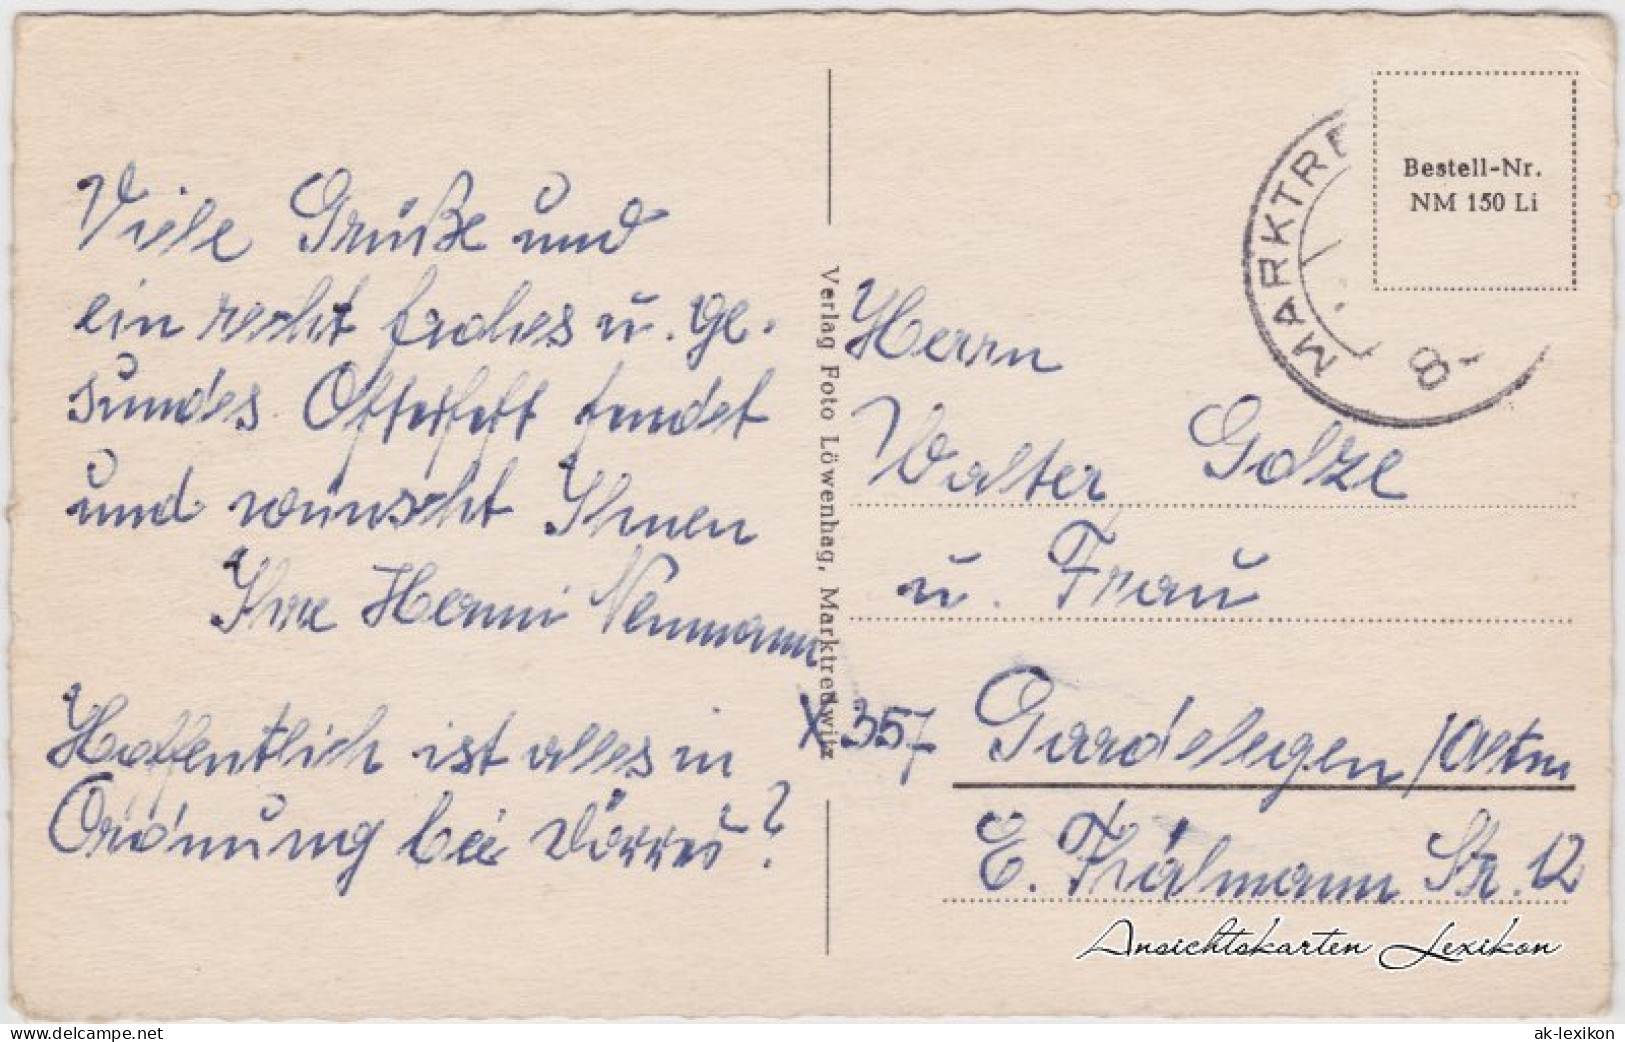 Viele Grüße und
ein recht frohes u. ge-
sundes Osterfest sendet
und wünscht Ihnen
Ihre Hanni Neumann
Hoffentlich ist alles in
Ordnung bei
Verlag Foto Löwenhag, Marktredwitz
MARKTRE
8
Bestell-Nr.
NM 150 Li
Herrn
Walter Golze
u. Frau
X 357 Gardelegen /Altm
E. Thälmann Str. 12
Ansichtskarten Lexikon
www.delcampe.net
ak-lexikon